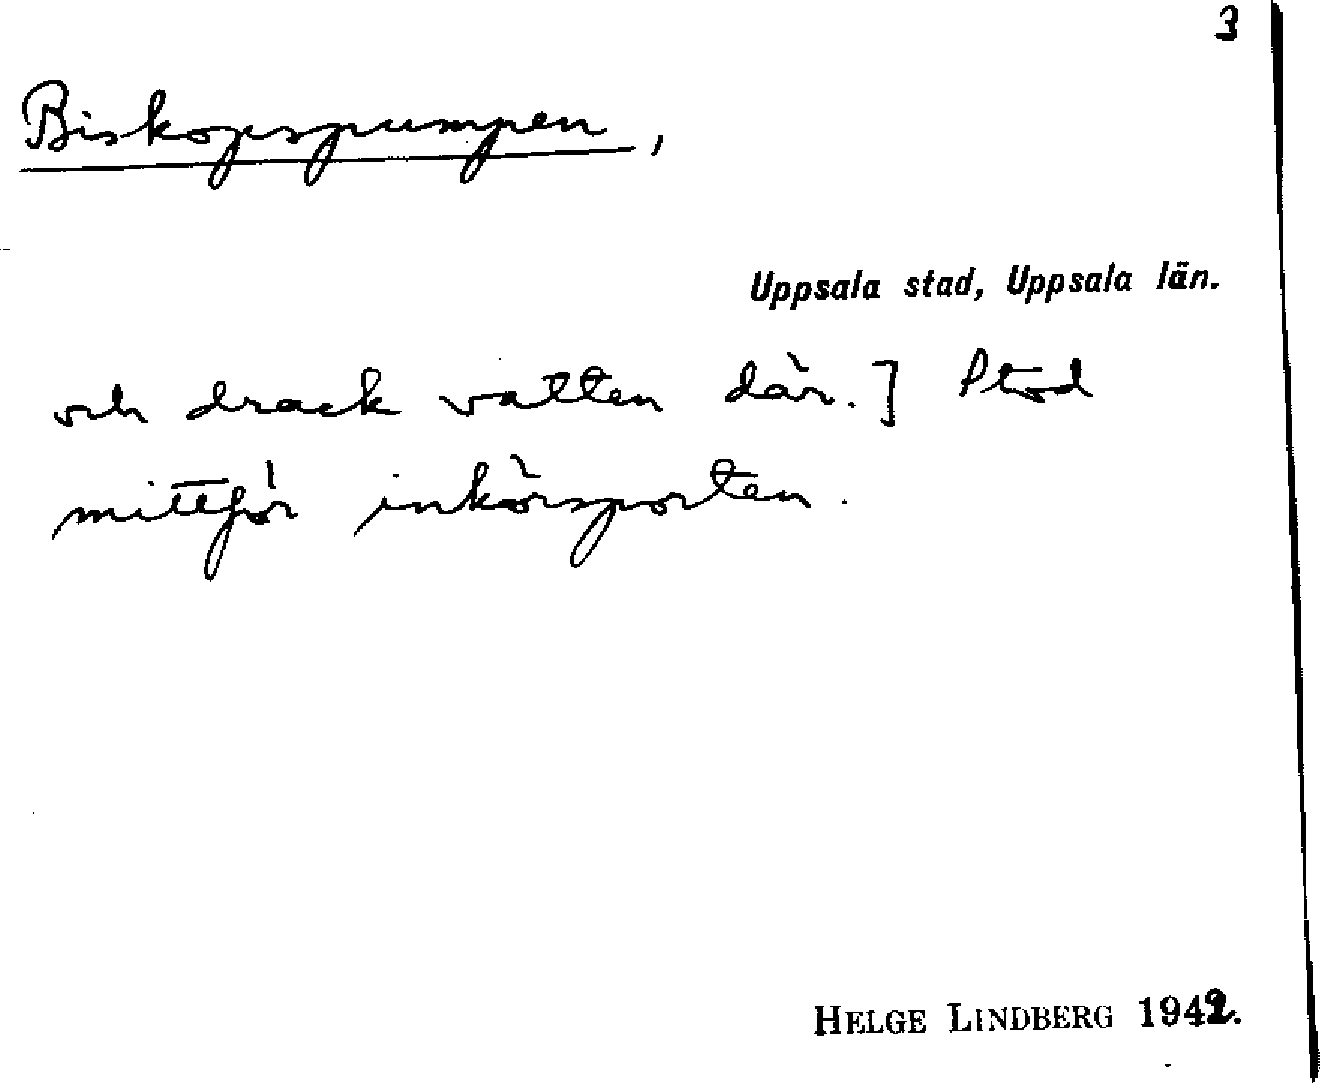 3
Biskopspumpen,
Uppsala stad, Uppsala län.
och drack vatten där.] Stod
mittför inkörsporten.
HELGE LINDBERG 1942.